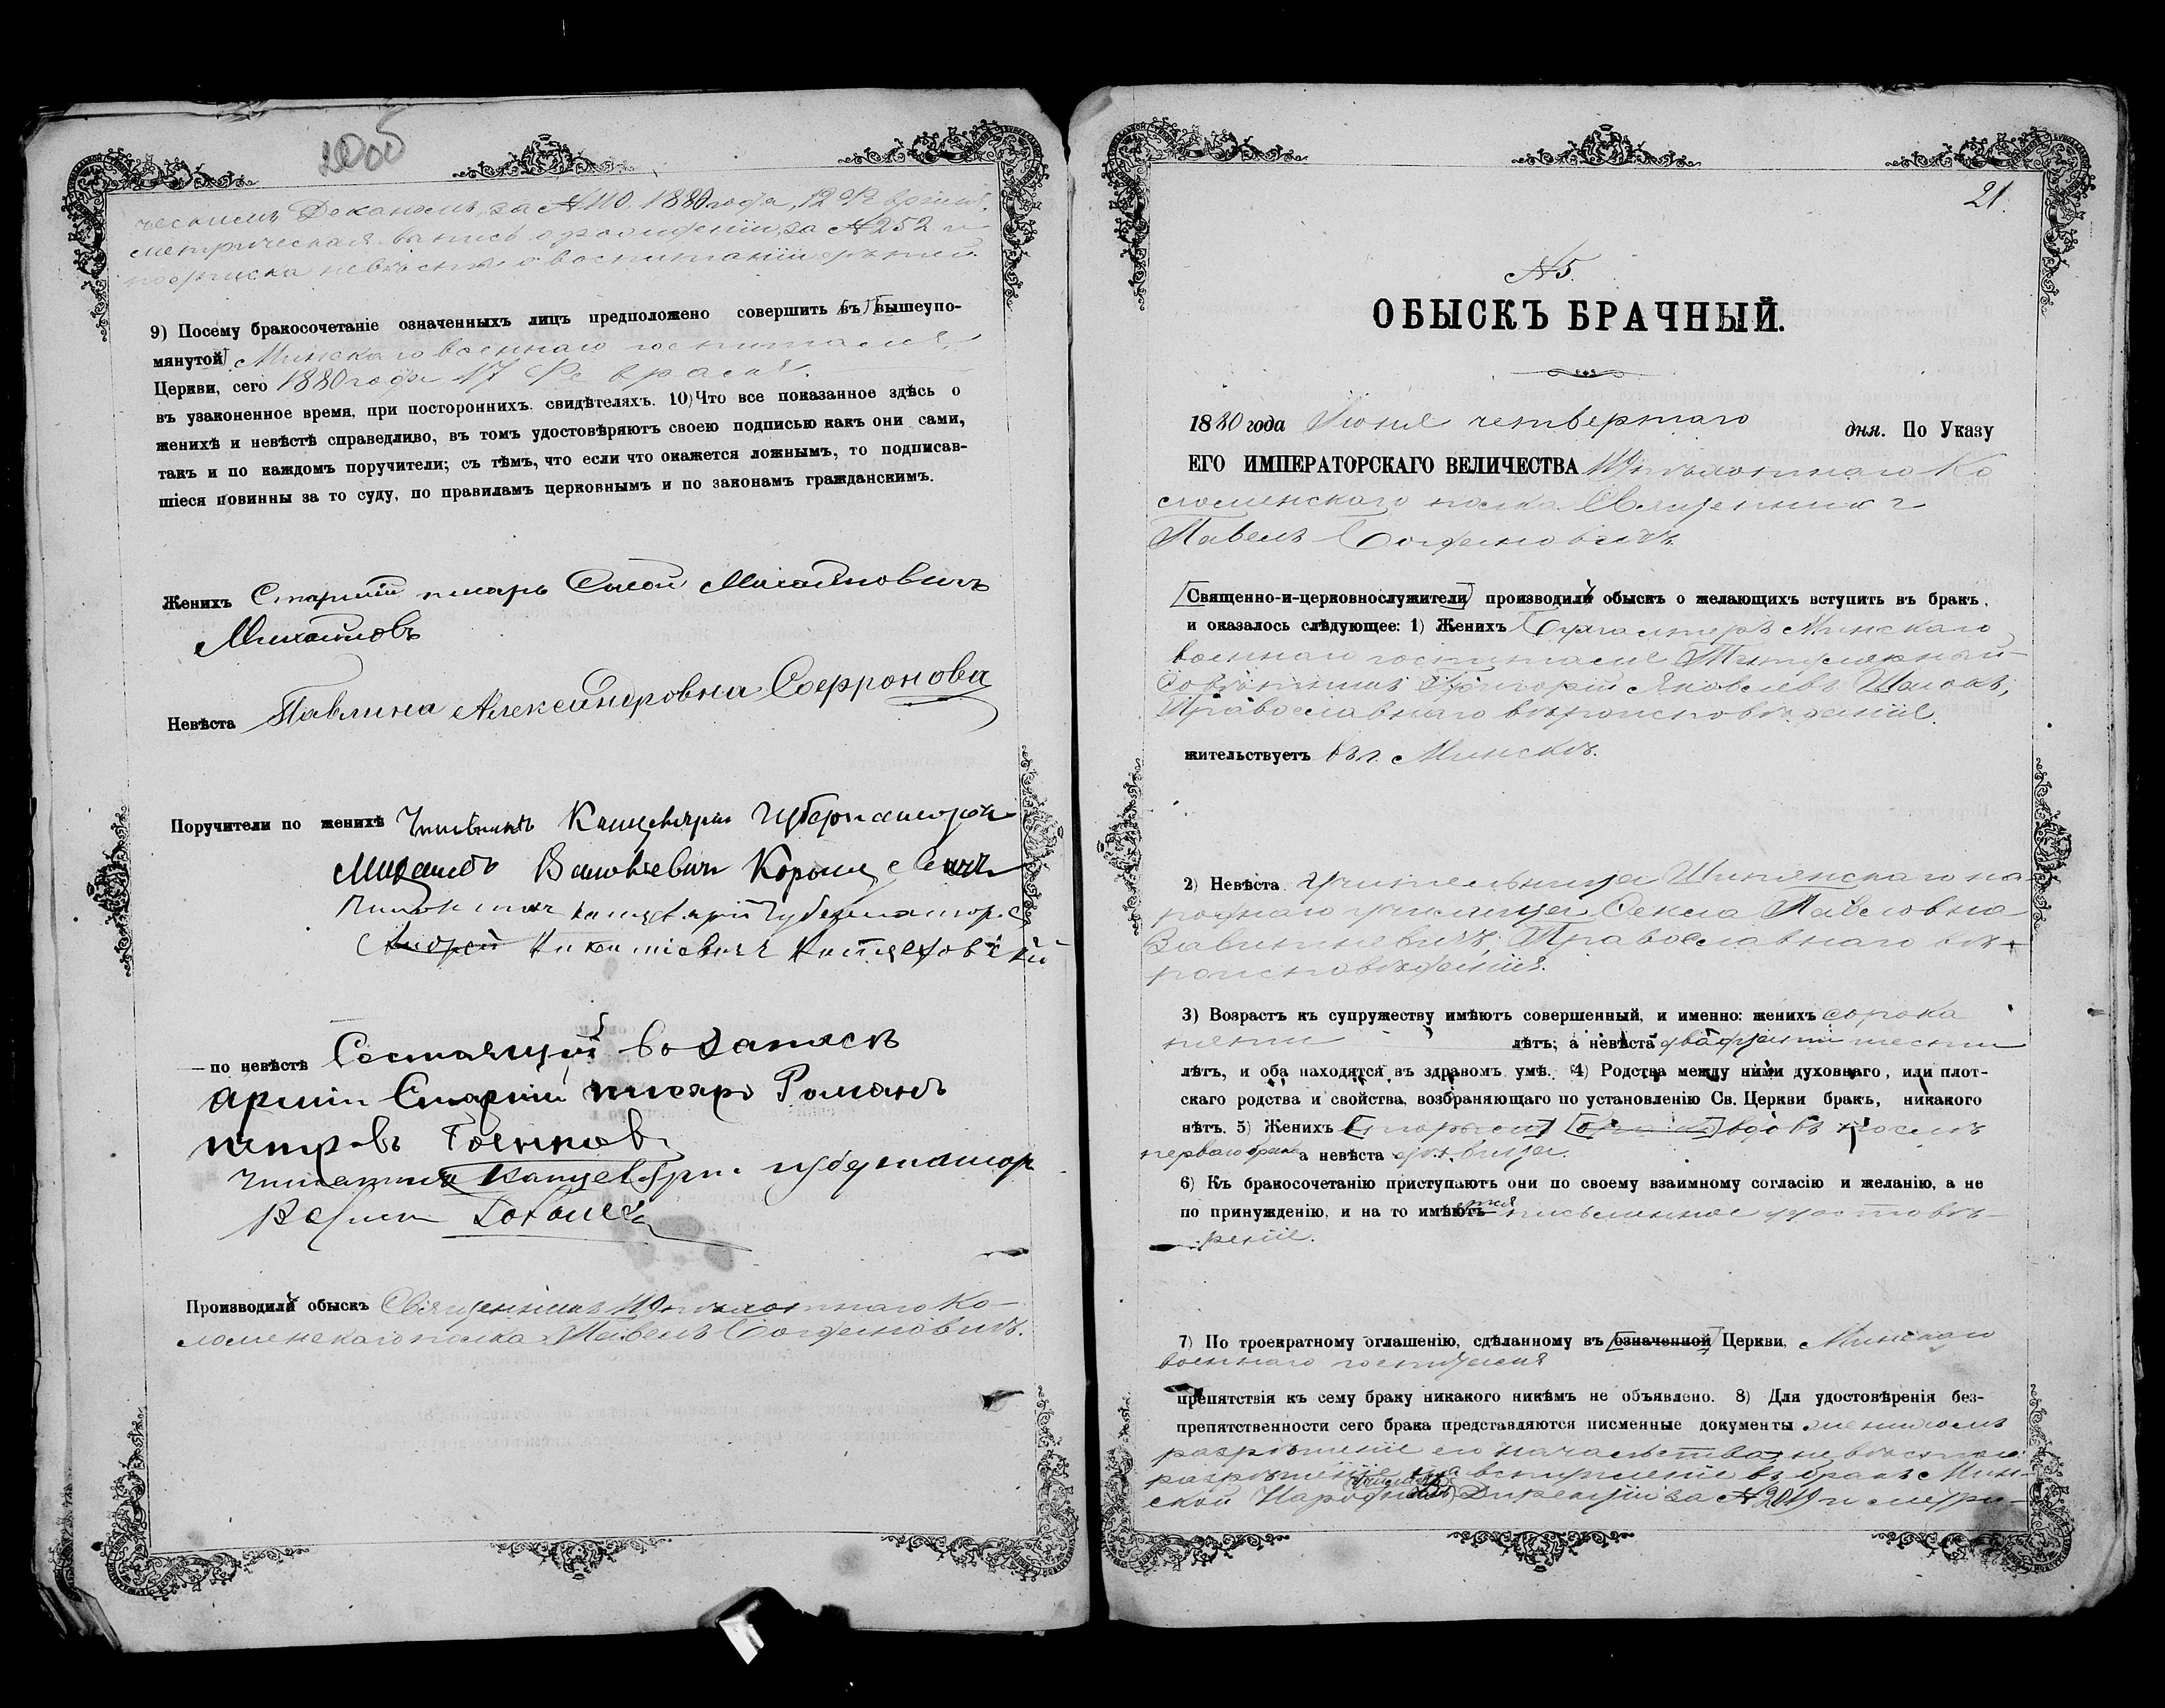 ческимъ Деканомъ, за №110. 1880 года, 12 Февраля,
метрическая запись о рожденіи, за №252 и
подписка невѣсты о воспитаніи дѣтей.
9) Посему бракосочетаніе означенныхъ лицъ предположено совершить въ вышеупо-
мянутой Минскаго военнаго госпиталя,
Церкви, сего 1880 года 17 Февраля.
въ узаконенное время, при постороннихъ. свидѣтеляхъ. 10) Что все показанное здѣсь о
женихѣ и невѣстѣ справедливо, въ томъ удостовѣряютъ своею подписью какъ они сами,
такъ и по каждомъ поручители; съ тѣмъ, что если что окажется ложнымъ, то подписав-
шіеся повинны за то суду, по правиламъ церковнымъ и по законамъ гражданскимъ.
Женихъ Старшій писарь Михайловичъ
Михайловъ
Невѣста Павлина Александровна Софронова
Поручители по женихѣ Чиновникъ Канцеляріи Губернатора
Михаилъ Васильевичъ
Чиновникъ канцеляріи Губернатора
Андрей
по невѣстѣ Состоящій въ запасѣ
арміи Старшій писарь Романъ
Петровъ
Чиновникъ Канцеляріи Губернатор
Производилъ обыскъ Священникъ 119 пѣхотнаго Ко-
ломенскаго полка Павелъ Богдановичъ.
21.
№5.
ОБЫСКЪ БРАЧНЫЙ.
1880 года Іюня четвертаго дня. По Указу
ЕГО ИМПЕРАТОРСКАГО ВЕЛИЧЕСТВА 119 пѣхотнаго Ко
ломенскаго полка Священникъ
Павелъ Богдановичъ.
Священно-и-церковнослужители производилъ обыскъ о желающихъ вступить въ бракъ,
и оказалось слѣдующее: 1) Женихъ Бухгалтеръ Минскаго
военнаго госпиталя Титулярный
Совѣтникъ Григорій Яковлевъ
Православнаго вѣроисповѣданія.
жительствуетъ въ г. Минскѣ.
2) Невѣста Учительница на-
роднаго училища Павловна
Православнаго вѣ-
роисповѣданія.
3) Возрастъ къ супружеству имѣютъ совершенный, и именно: женихъ сорока
пяти лѣтъ; а невѣста двадцати шести
лѣтъ, и оба находятся въ здравомъ умѣ. 4) Родства между ними духовнаго, или плот-
скаго родства и свойства, возбраняющаго по установленію Св. Церкви бракъ, никакого
нѣтъ. 5) Женихъ вдовъ послѣ
перваго брака а невѣста дѣвица.
6) Къ бракосочетанію приступаютъ они по своему взаимному согласію и желанію, а не
по принужденію, и на то имѣютъ письменное удостовѣ-
реніе.
7) По троекратному оглашенію, сдѣланному въ означенной Церкви, Минскаго
военнаго госпиталя
препятствія къ сему браку никакого никѣмъ не объявлено. 8) Для удостовѣренія без-
препятственности сего брака представляются писменные документы женихомъ
разрѣшеніе его начальства, невѣстою
разрѣшеніе на вступленіе въ бракъ Мин-
ской Народныхъ училищъ Дирекціи за № и метри-